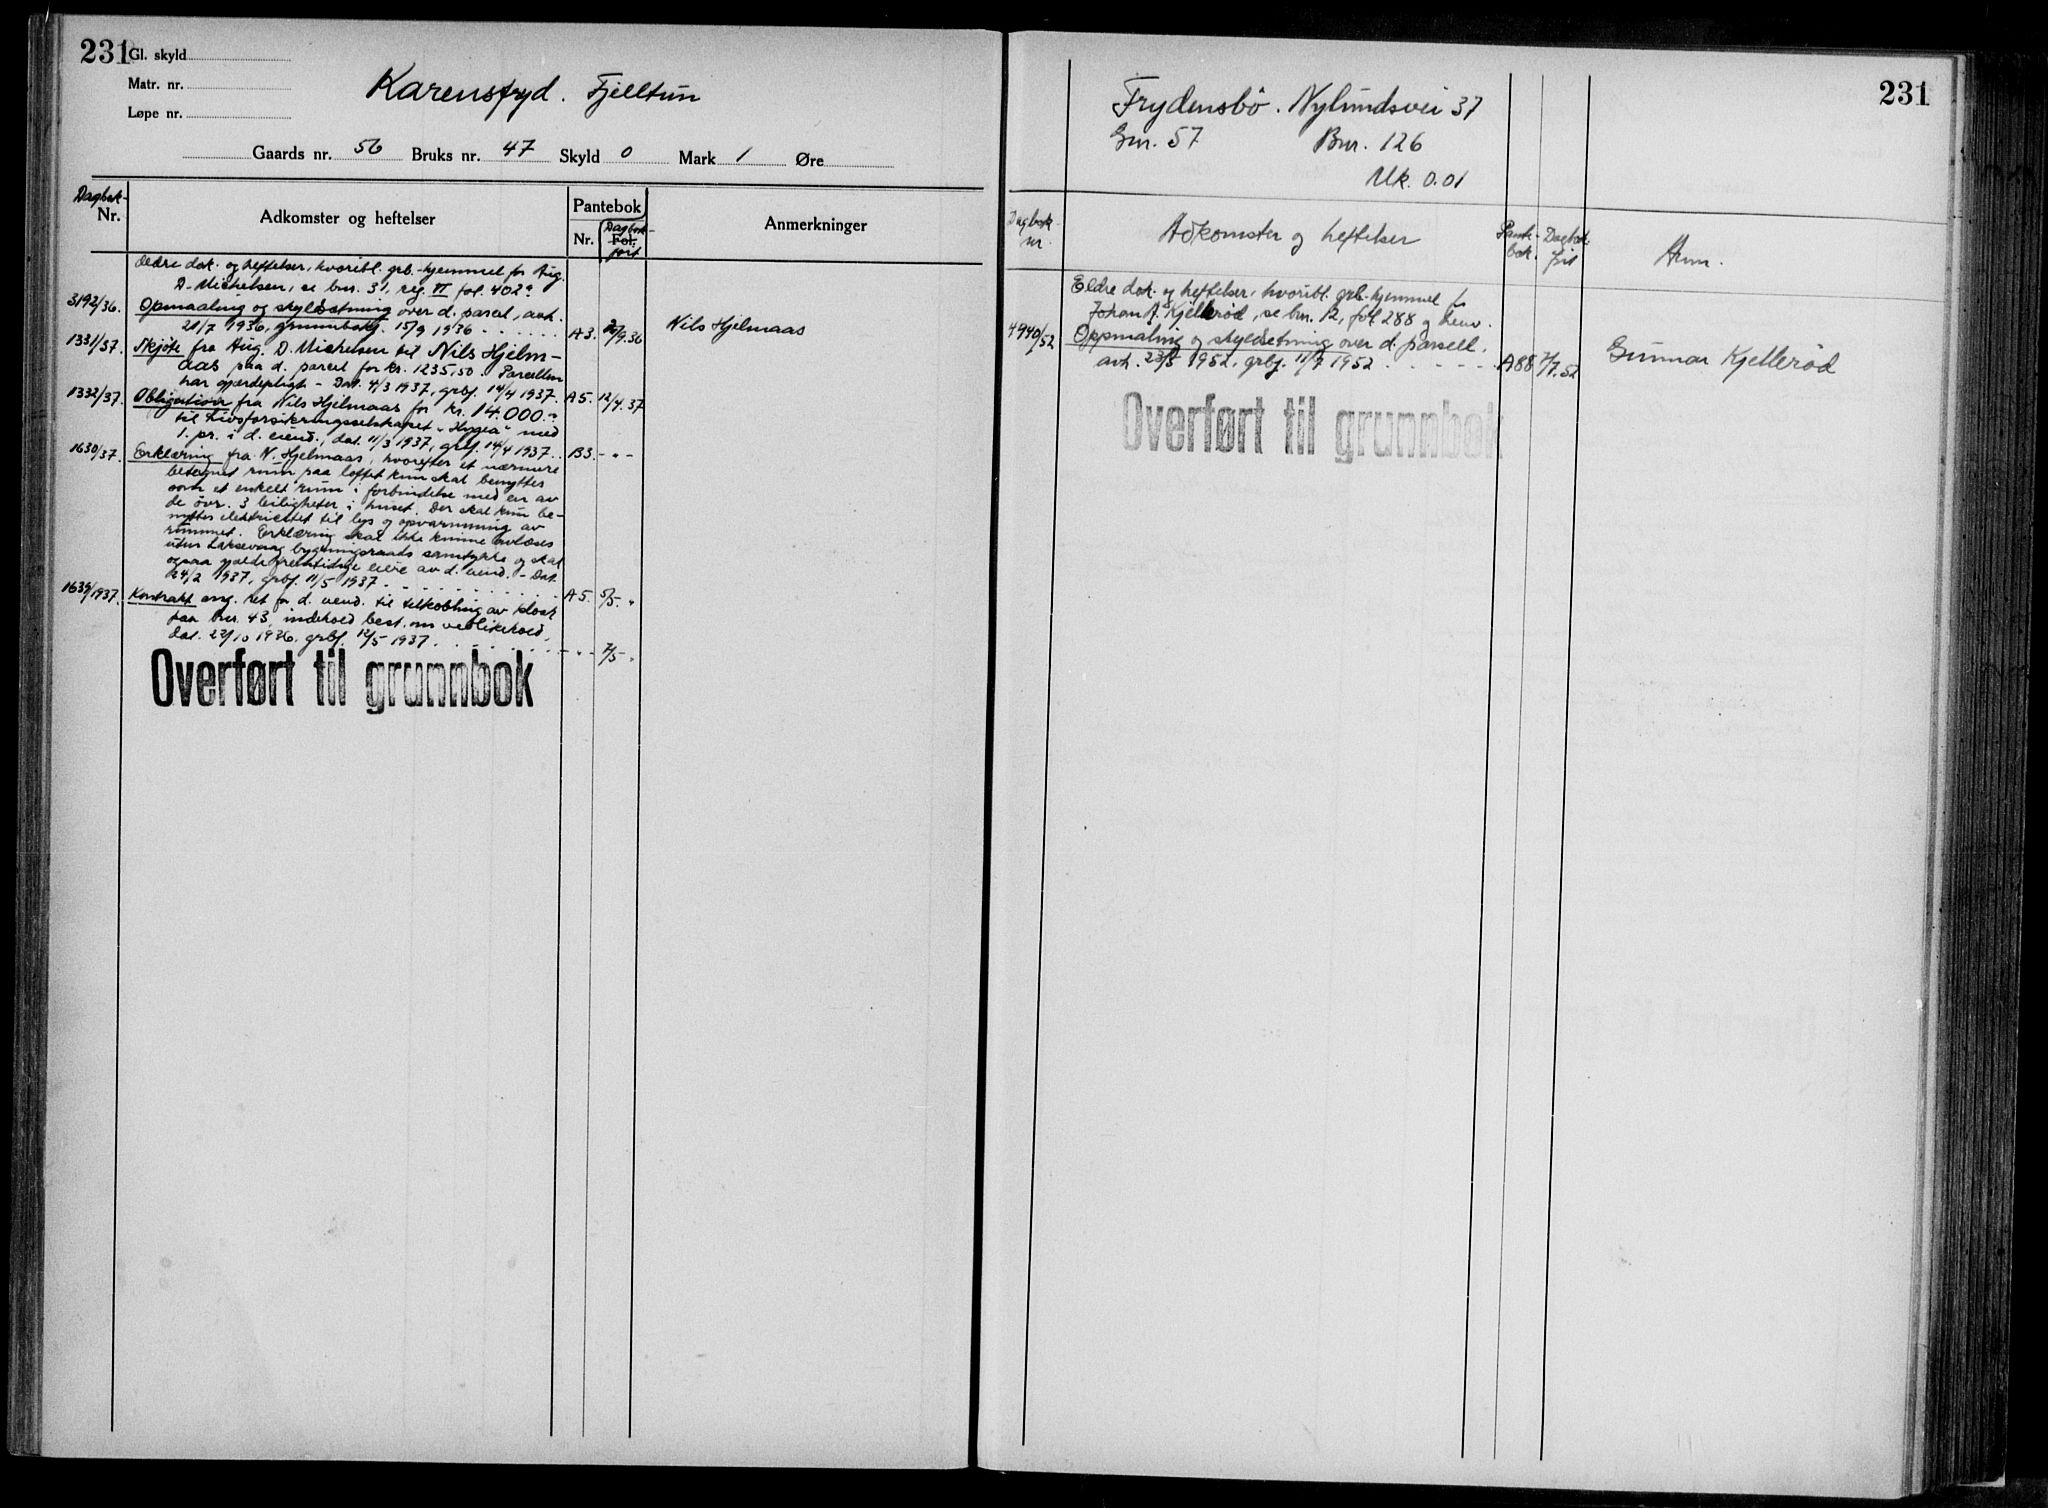 231
Gl. skyld
Matr. nr.
Løpe nr.
Karensfryd. Fjelltun
Gaards nr. 56 Bruks nr. 47 Skyld 0 Mark 1 Øre
Dagbok-
Nr.
Adkomster og heftelser
Pantebok
Nr.
Dagbok-
Fol.
ført
Anmerkninger
Ældre dok. og heftelser, hvoribl. grb.-hjemmel for Aug.
D. Michelsen, se bnr. 31, reg. VI fol. 402a
3192/36. Opmaaling og skyldsetning over d. parcel, avh.
21/7 1936, grunnbokf. 15/9 1936 A3. 2/9.36 Nils Hjelmaas
1331/37. Skjøte fra Aug. D. Michelsen til Nils Hjelm-
aas paa d. parcel for kr. 1235,50. Parcellen
har gjærdepligt - Dat. 4/3 1937, grbf. 14/4 1937. A5. 12/4.37
1332/37. Obligation fra Nils Hjelmaas for kr. 14.000.-
til Livsforsikringsselskapet "Hygea" med
1. pr. i d. eiend., dat. 11/3 1937, grbf. 14/4 1937. B3. - " -
1630/37. Erklæring fra N. Hjelmaas, hvorefter et nærmere
betegnet rum paa loftet kun skal benyttes
som et enkelt rum i forbindelse med en av
de øvr. 3 leiligheter i huset. Der skal kun be-
nyttes elektricitet til lys og opvarmning av
rummet. Erklæring skal ikke kunne avlæses
uten Laksevaag bygningsraads samtykke og skal
ogsaa gjelde fremtidige eiere av d. eiend. - Dat.
24/2 1937, grbf. 11/5 1937 A5. 5/5. "
1639/1937. Kontrakt ang. ret for d. eiend. til tilkobling av kloak
paa bnr. 43, indehold best. om vedlikehold,
dat. 27/10 1936, grbf. 12/5 1937. - " - 7/5 "
Overført til grunnbok
231
Frydensbø. Nylundsvei 37
Gnr. 57 Bnr. 126
Mk. 0.01
Dagbok
nr.
Adkomster og heftelser
Pante-
bok.
Dagbok
ført
Anm.
Eldre dok. og heftelser, hvoribl. grb.-hjemmel for
Johan A. Kjellerød, se bnr. 12, fol 288 og henv.
4940/52 Oppmaling og skyldsetning over d. parsell,
avh. 23/5 1952, grbf. 11/7 1952 A88 7/7.52 Gunnar Kjellerød
Overført til grunnbok